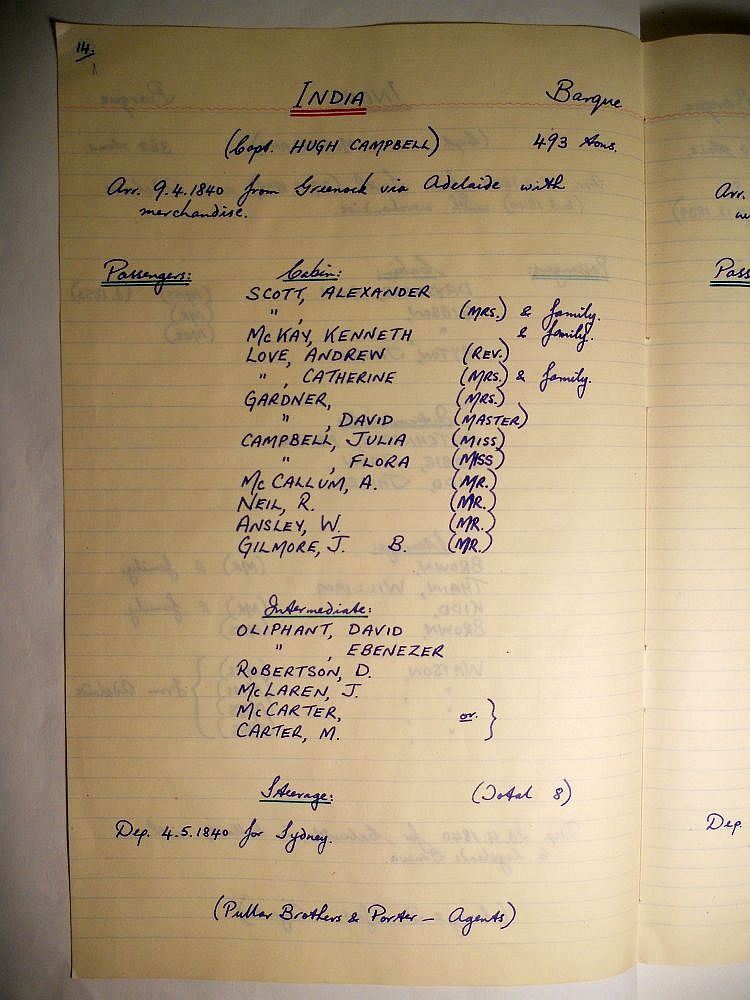 14.
INDIA Barque
(Capt. HUGH CAMPBELL) 493 tons.
Arr. 9.4.1840 from Greenock via Adelaide with
merchandise.
Passengers: Cabin:
SCOTT, ALEXANDER
" , (MRS.) & family.
McKAY, KENNETH & family.
LOVE, ANDREW (REV.)
" , CATHERINE (MRS.) & family.
GARDNER, (MRS.)
" , DAVID (MASTER)
CAMPBELL, JULIA (MISS)
" , FLORA (MISS)
McCALLUM, A. (MR.)
NEIL, R. (MR.)
ANSLEY, W. (MR.)
GILMORE, J. B. (MR.)
Intermediate:
OLIPHANT, DAVID
" , EBENEZER
ROBERTSON, D.
McLAREN, J.
McCARTER, or. }
CARTER, M.
Steerage: (Total 8)
Dep. 4.5.1840 for Sydney.
(Pullar Brothers & Porter - Agents)
Arr.
Pass
Dep.